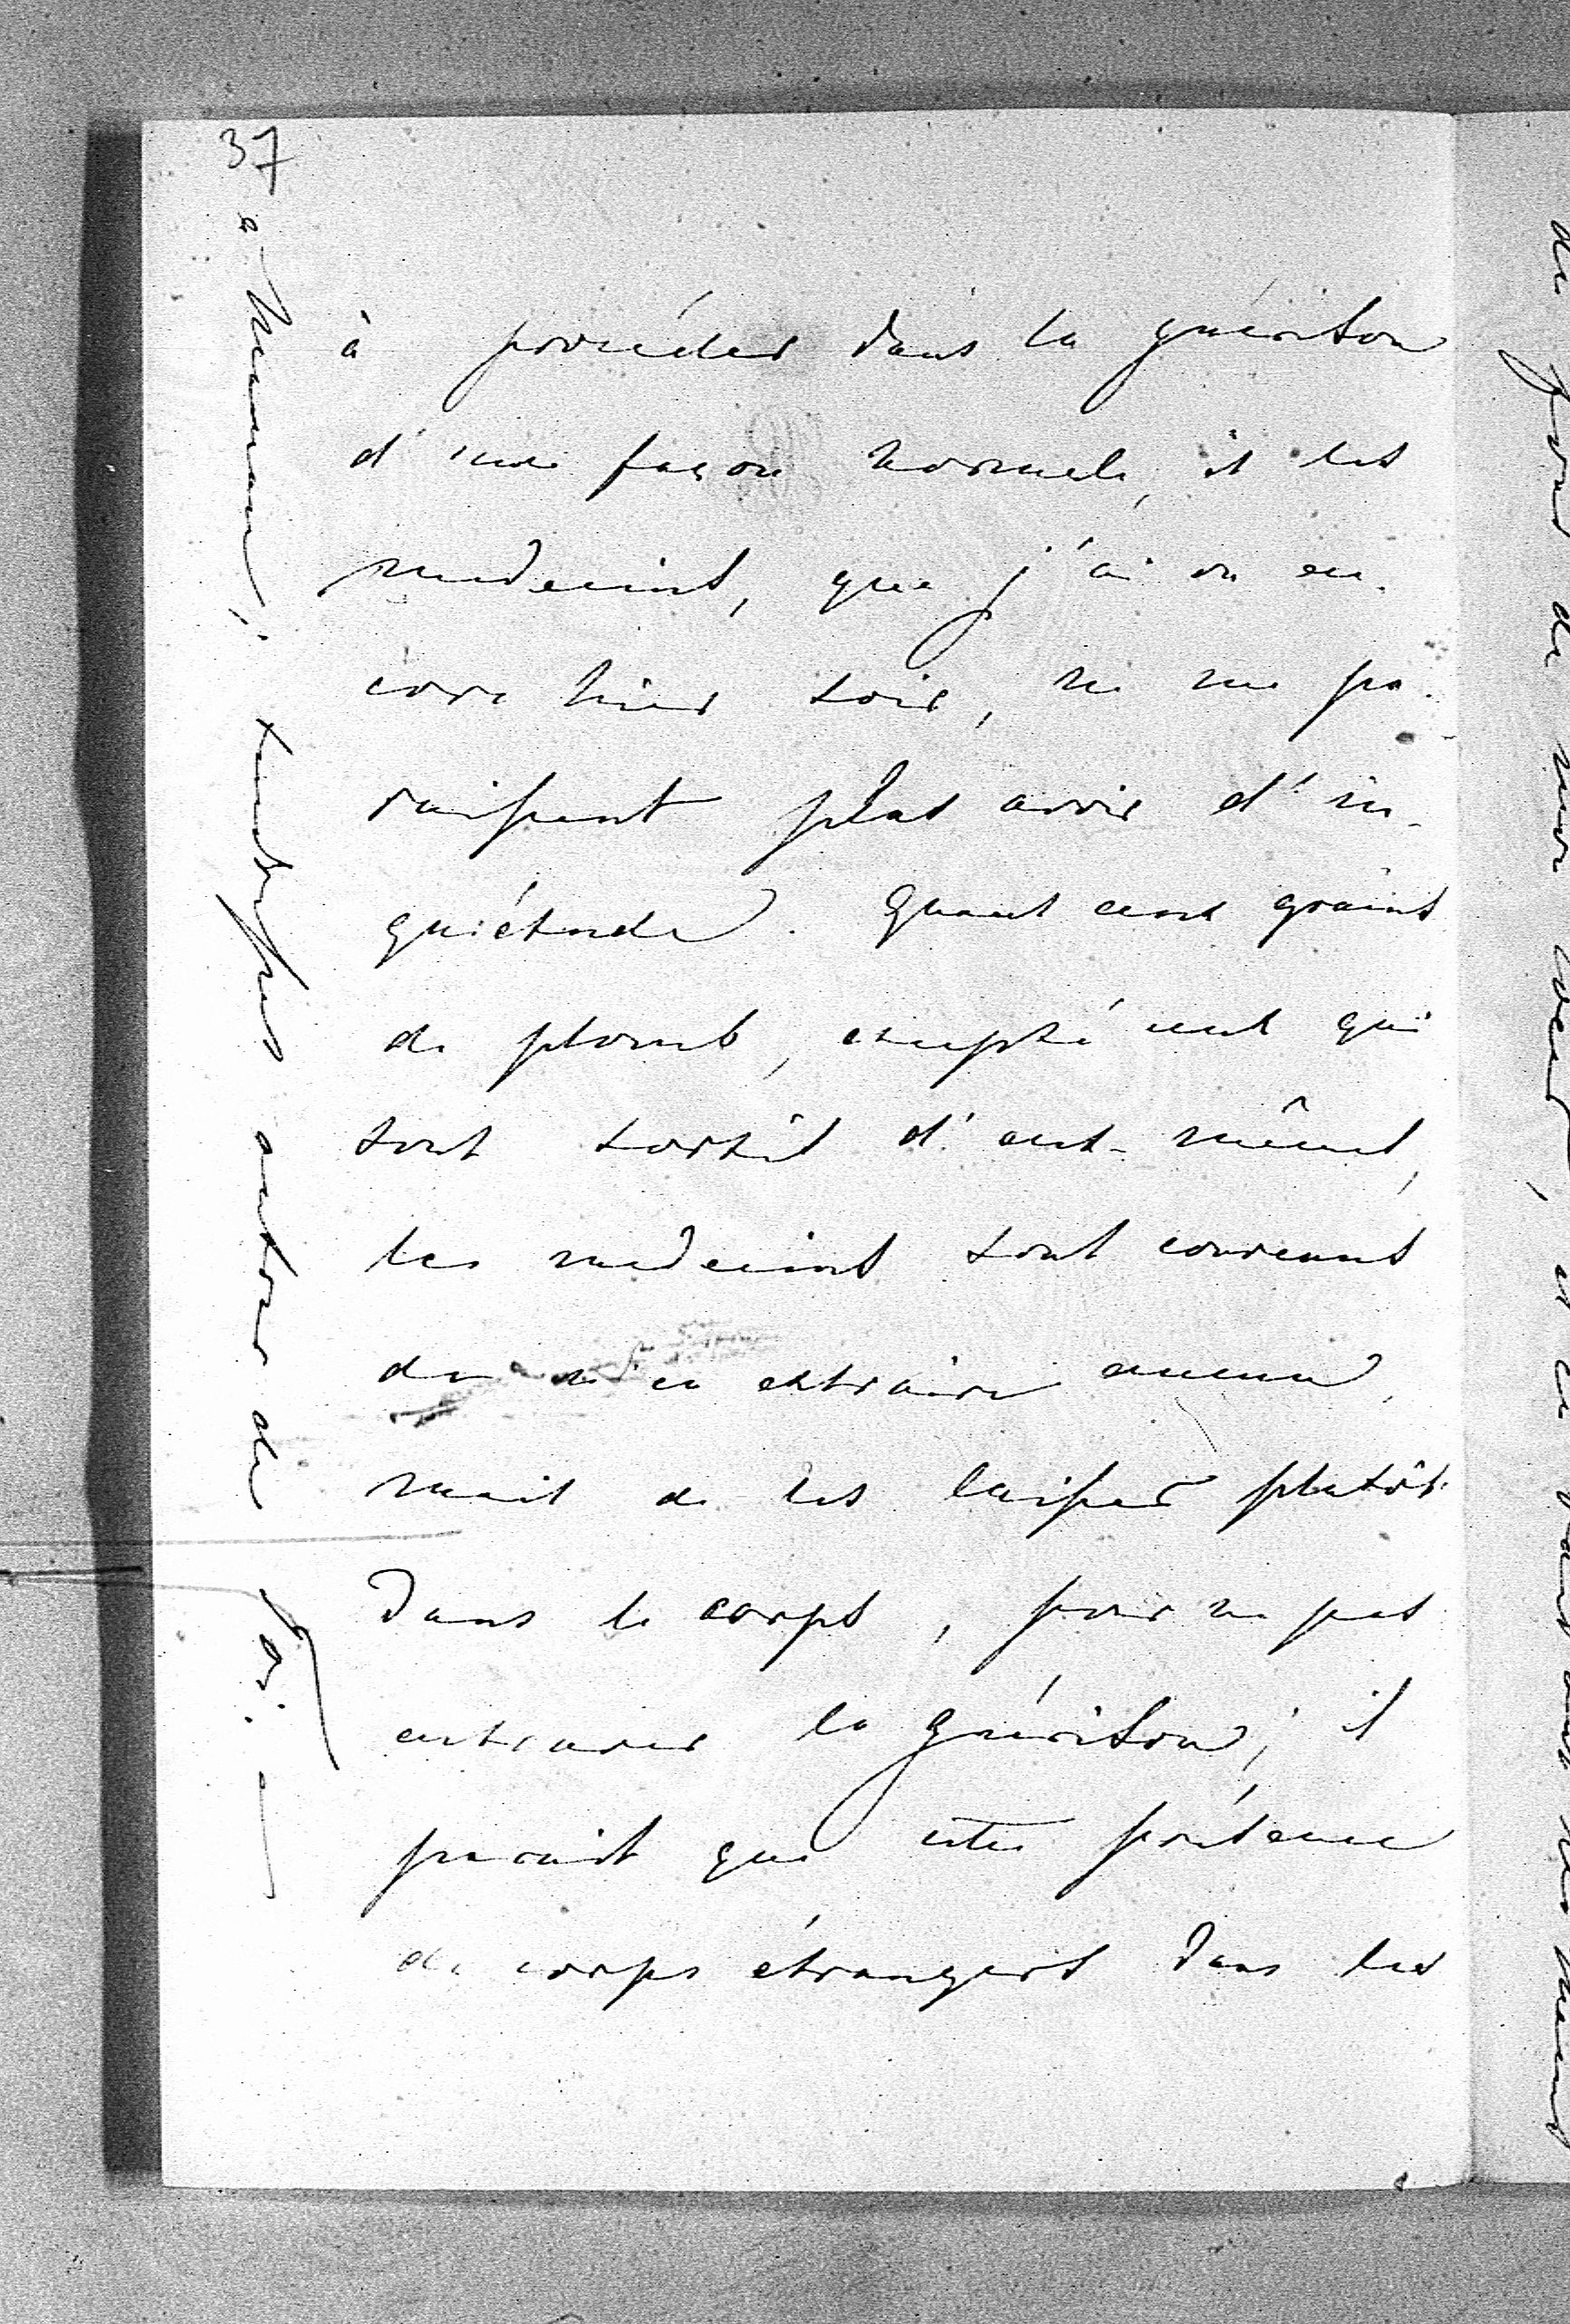 37
à procéder dans la guérison
d'une façon normale, et les
medecins, que j'ai vu en-
core hier soir, ne me pa-
raissent plus avoir d'in-
quiétude. Quant aux grains
de plomb, excepté ceux qui
sont sortis d'eux-mêmes,
les medecins sont convenus
de n'en extraire aucun,
mais de les laisser plutôt
dans le corps, pour ne pas
entraver la guérison; il
parait que cette présence
de corps étrangers dans les
a Maman,
autour de Toi.